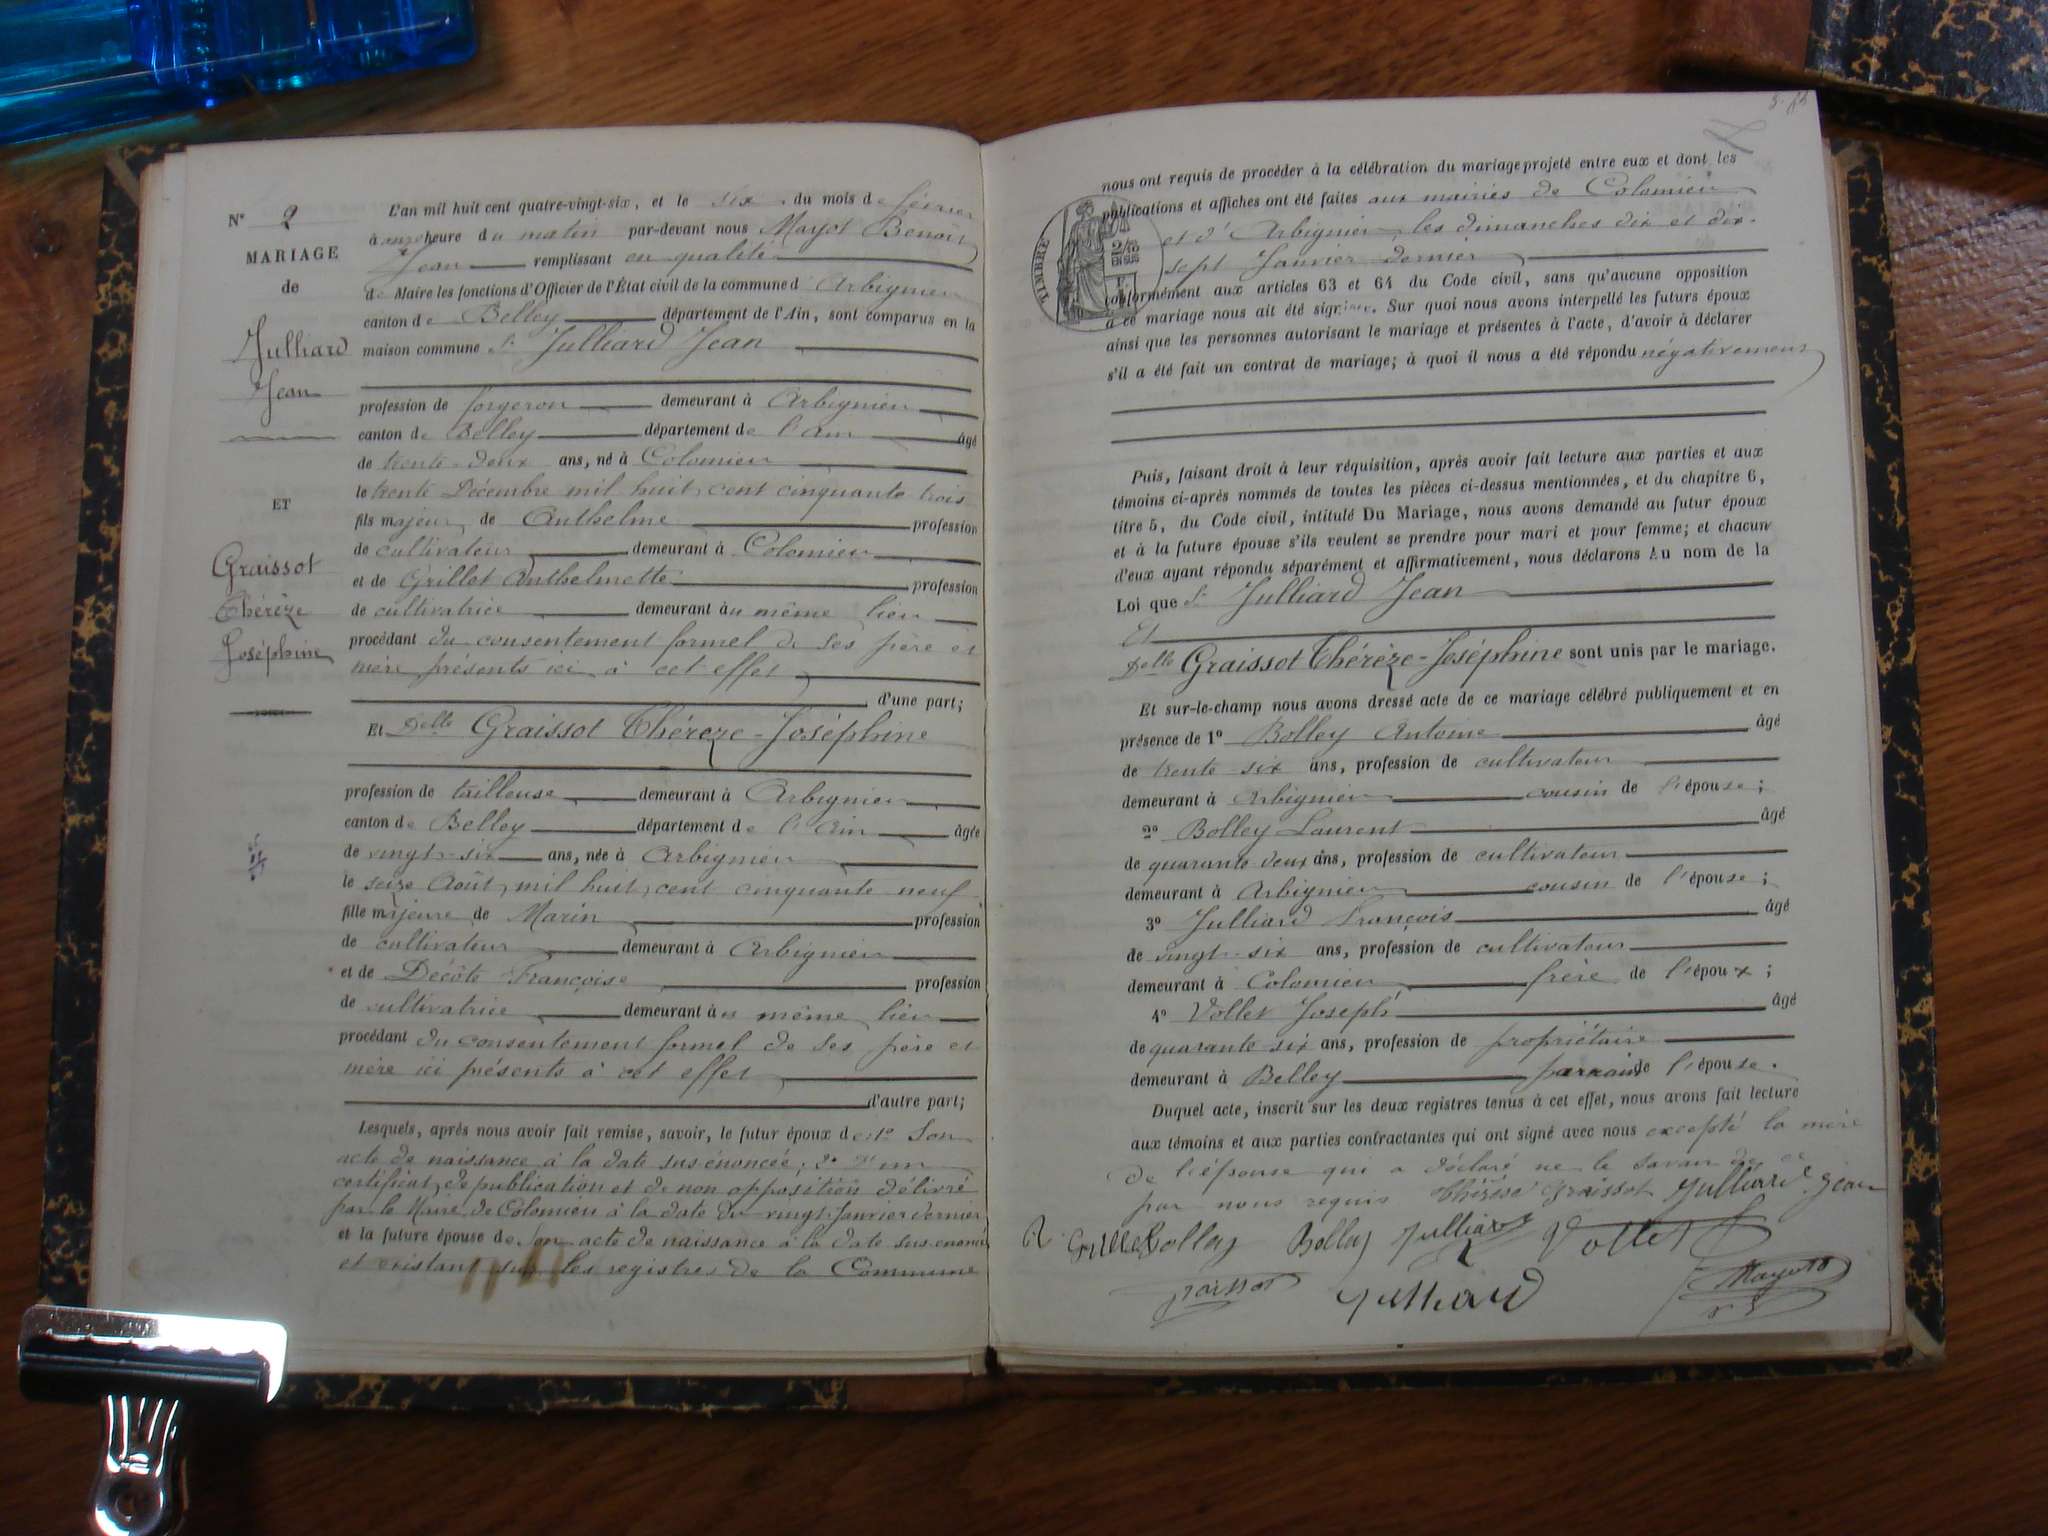 N° 2
MARIAGE
de
Julliard
Jean
ET
Graissot
Thérèze
Joséphine
L'an mil huit cent quatre-vingt-six, et le six du mois de février
à onze heure du matin par-devant nous Mayot Benoit
Jean remplissant en qualité
de Maire les fonctions d'Officier de l'État civil de la commune d'Arbignieu
canton de Belley département de l'Ain, sont comparus en la
maison commune Sr Julliard Jean
profession de forgeron demeurant à Arbignieu
canton de Belley département de l'Ain âgé
de trente-deux ans, né à Colomieu
le trente Décembre mil huit cent cinquante trois
fils majeur de Anthelme profession
de cultivateur demeurant à Colomieu
et de Grillet Anthelmette profession
de cultivatrice demeurant au même lieu
procédant du consentement formel de ses père et
mère présents ici à cet effet
d'une part;
Et Delle Graissot Thérèze-Joséphine
profession de tailleuse demeurant à Arbignieu
canton de Belley département de l'Ain âgée
de vingt-six ans, née à Arbignieu
le seize Août mil huit cent cinquante neuf
fille majeure de Marin profession
de cultivateur demeurant à Arbignieu
et de Décôte Françoise profession
de cultivatrice demeurant au même lieu
procédant du consentement formel de ses père et
mère ici présents à cet effet
d'autre part;
Lesquels, après nous avoir fait remise, savoir, le futur époux de: 1° Son
acte de naissance à la date sus énoncée; 2° D'un
certificat de publication et de non opposition délivré
par le Maire de Colomieu à la date du vingt Janvier dernier
et la future épouse de Son acte de naissance à la date sus énoncée
et existant sur les registres de la Commune
nous ont requis de procéder à la célébration du mariage projeté entre eux et dont les
publications et affiches ont été faites aux mairies de Colomieu
et d'Arbignieu les dimanches dix et dix-
sept Janvier dernier
TIMBRE
2/10
EN SUS
conformément aux articles 63 et 64 du Code civil, sans qu'aucune opposition
à ce mariage nous ait été signifiée. Sur quoi nous avons interpellé les futurs époux
ainsi que les personnes autorisant le mariage et présentes à l'acte, d'avoir à déclarer
s'il a été fait un contrat de mariage; à quoi il nous a été répondu négativement
Puis, faisant droit à leur réquisition, après avoir fait lecture aux parties et aux
témoins ci-après nommés de toutes les pièces ci-dessus mentionnées, et du chapitre 6,
titre 5, du Code civil, intitulé Du Mariage, nous avons demandé au futur époux
et à la future épouse s'ils veulent se prendre pour mari et pour femme; et chacun
d'eux ayant répondu séparément et affirmativement, nous déclarons Au nom de la
Loi que Sr Julliard Jean
Et
Delle Graissot Thérèze-Joséphine sont unis par le mariage.
Et sur-le-champ nous avons dressé acte de ce mariage célébré publiquement et en
présence de 1° Bolley Antoine âgé
de trente-six ans, profession de cultivateur
demeurant à Arbignieu cousin de l'épouse;
2° Bolley Laurent âgé
de quarante deux ans, profession de cultivateur
demeurant à Arbignieu cousin de l'épouse;
3° Julliard François âgé
de vingt-six ans, profession de cultivateur
demeurant à Colomieu frère de l'époux;
4° Vollet Joseph âgé
de quarante six ans, profession de propriétaire
demeurant à Belley parrain de l'épouse.
Duquel acte, inscrit sur les deux registres tenus à cet effet, nous avons fait lecture
aux témoins et aux parties contractantes qui ont signé avec nous excepté la mère
de l'épouse qui a déclaré ne le savoir de ce
par nous requis Thérèse graissot Julliard Jean
Grillet Bolley Bolley Julliard Vollet
graissot Julliard Mayot